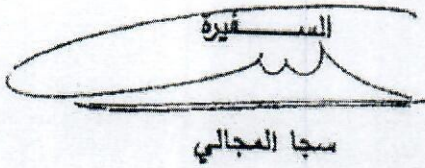 السفيرة
سجا المجالي